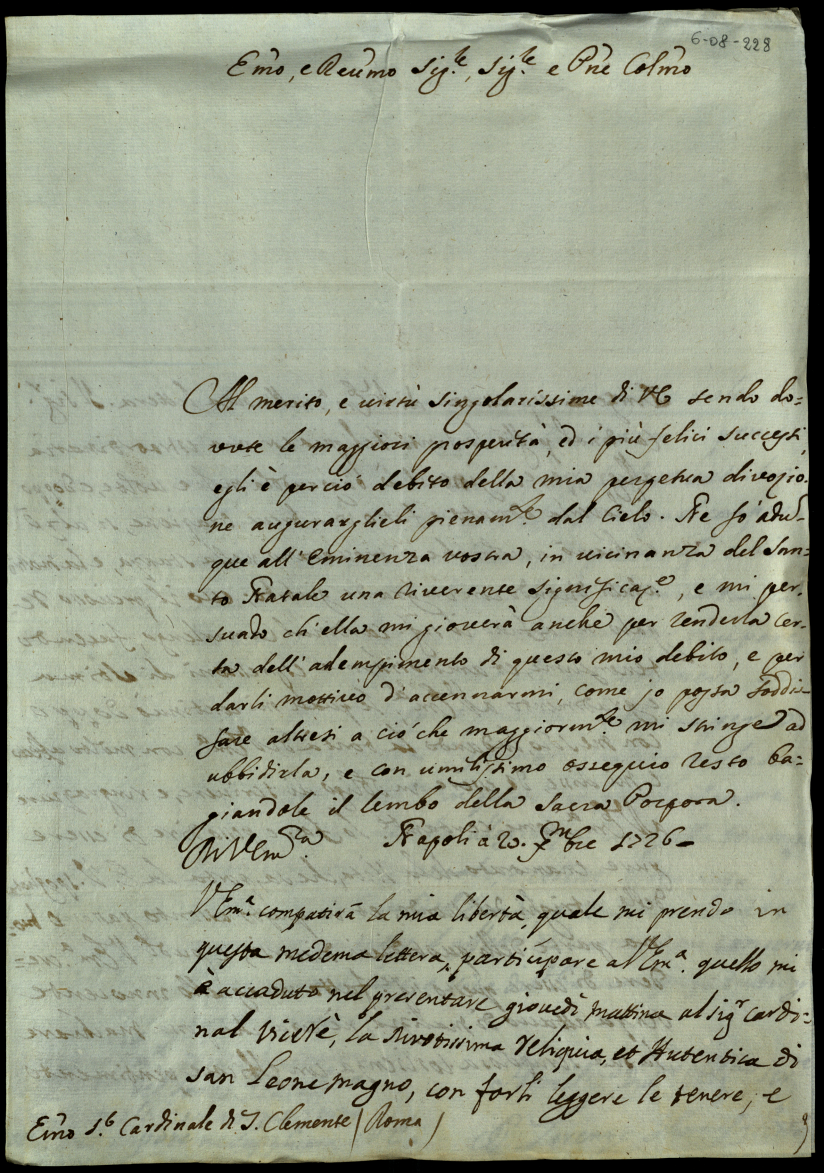 6-08-228
Em̃o, e Reu̅mo Sig.re, Sig.re e Pr̃ne Colm̃o
Al merito, e uirtù singolarissime di VE sendo do=
uute le maggiori prosperità, ed i più felici successi,
egli è perciò debito della mia perpetua diuozio-
ne augurarglieli pienam.te dal Cielo. Ne fo adu̅-
que all'Eminenza vostra, in uicinanza del San=
to Natale una riuerente significaz.e, e mi per-
suado ch'ella mi giouerà anche per renderla cer-
ta dell'adempimento di questo mio debito, e per
darli mottiuo d'accennarmi, come jo possa soddis-
fare altresi a ciò che maggiorm.te mi stringe ad
ubbidirla, e con umilissimo ossequio resto ba=
giandole il lembo della Sacra Porpora.
Di VEm.za Napoli à 20. Xm̃bre 1726=
VEm.a compatirà la mia libertà, quale mi prendo in
questa medema lettera, participare a VEm.a quello mi
è accaduto nel presentare giouedì mattina al sig.r cardi=
nal Vicerè, la diuotissima reliquia, et Autentica di
san Leone magno, con forli leggere le tenere, e
Em̃o S.r Cardinale di S. Clemente (Roma)